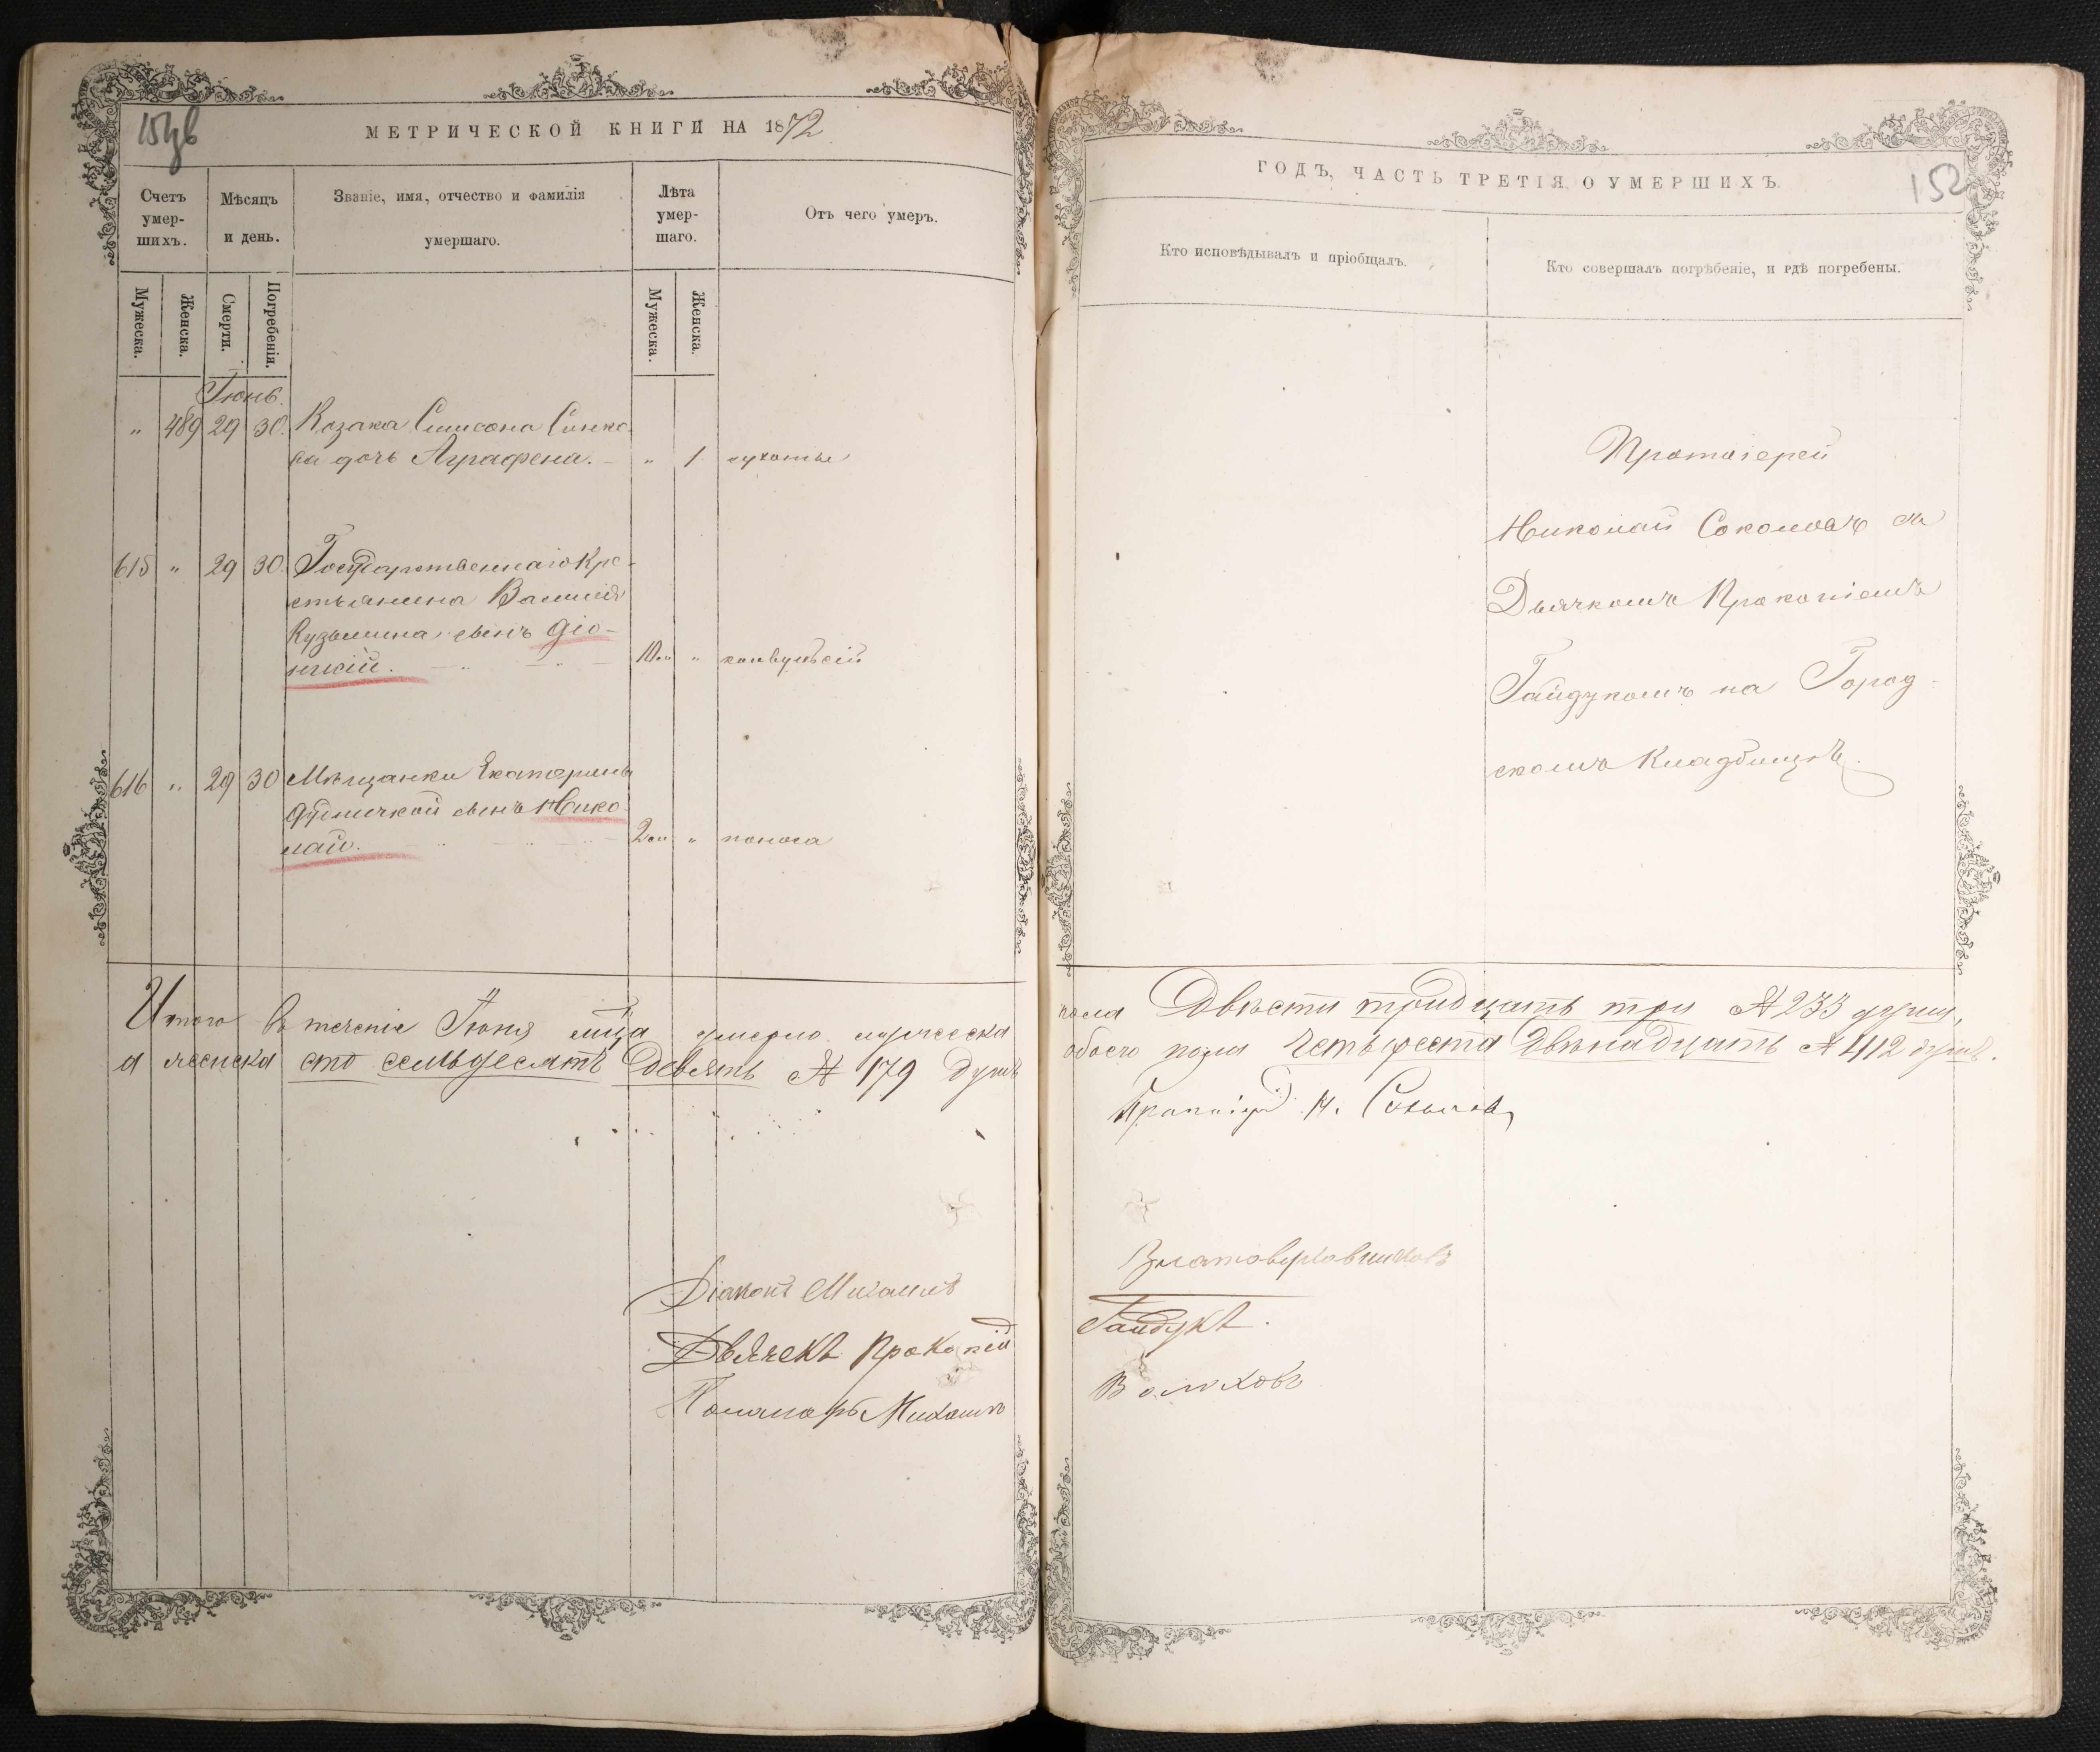 МЕТРИЧЕСКОЙ КНИГИ НА 1872
Счетъ умер-шихъ.
Мѣсяцъ и день.
Званіе, имя, отчество и фамилія умершаго.
Лѣта умер-шаго.
Отъ чего умеръ.
Мужеска.
Женска.
Смерти.
Погребенія.
Мужеска.
Женска.
Іюнь.
„ 489 29 30. Козака Симеона Синко
ва дочь Аграфена. „ 1 сухотъи
615 „ 29 30. Государственнаго Кре-
стьянина Василія
Кузьмина сынъ Діо-
нисій. 10 м „ конвульсій
616 „ 29 30 Мѣщанки Екатерины
сынъ Нико
лай. 2 м „ поноса
Итого въ теченіе Іюня мца умерло мужеска
а женска сто семьдесятъ девять № 179 душъ
Діаконъ Михаилъ
Дьячекъ Прокопій
Пономарь Михаилъ
ГОДЪ, ЧАСТЬ ТРЕТІЯ, О УМЕРШИХЪ.
152
Кто исповѣдывалъ и пріобщалъ.
Кто совершалъ погрѣбеніе, и гдѣ погребены.
Протоіерей
Николай Соколовъ съ
Дьячкомъ Прокопіемъ
Гайдукомъ на Город-
скомъ Кладбищѣ.
пола Двѣсти тридцать три № 233 души,
обоего пола Четыреста двѣнадцать № 412 душъ.
Протоіерей Н. Соколовъ
Златоверховниковъ
Гайдукъ.
Волховъ